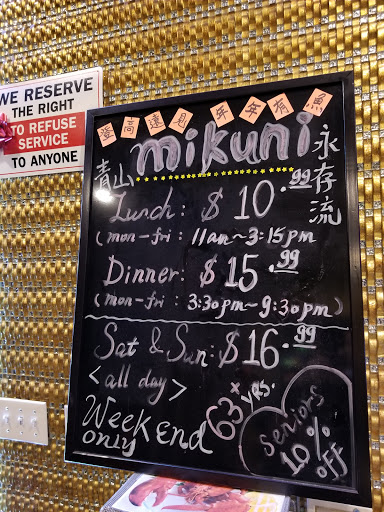 WE RESERVE
THE RIGHT
TO REFUSE
SERVICE
TO ANYONE
登高遠見年年有魚
mikuni
青山
永存流
Lunch: $10.99
(mon-fri: 11am~3:15pm
Dinner: $15.99
(mon-fri: 3:30pm~9:30pm)
Sat & Sun: $16.99
<all day>
Weekend
only
63+ yrs.
Seniors
10%
off